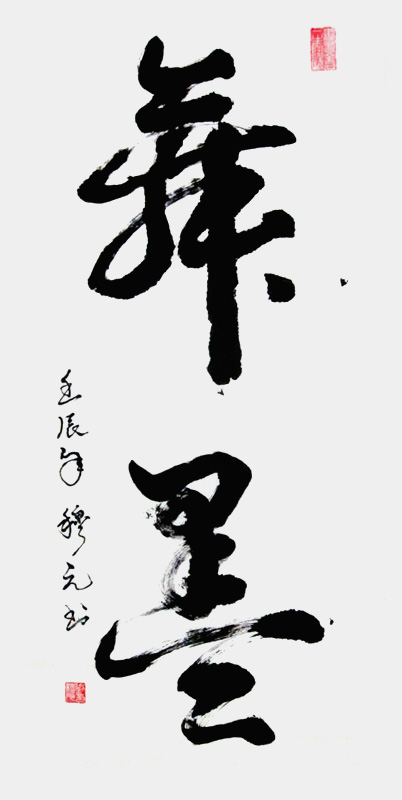 舞墨
壬辰年穆元书